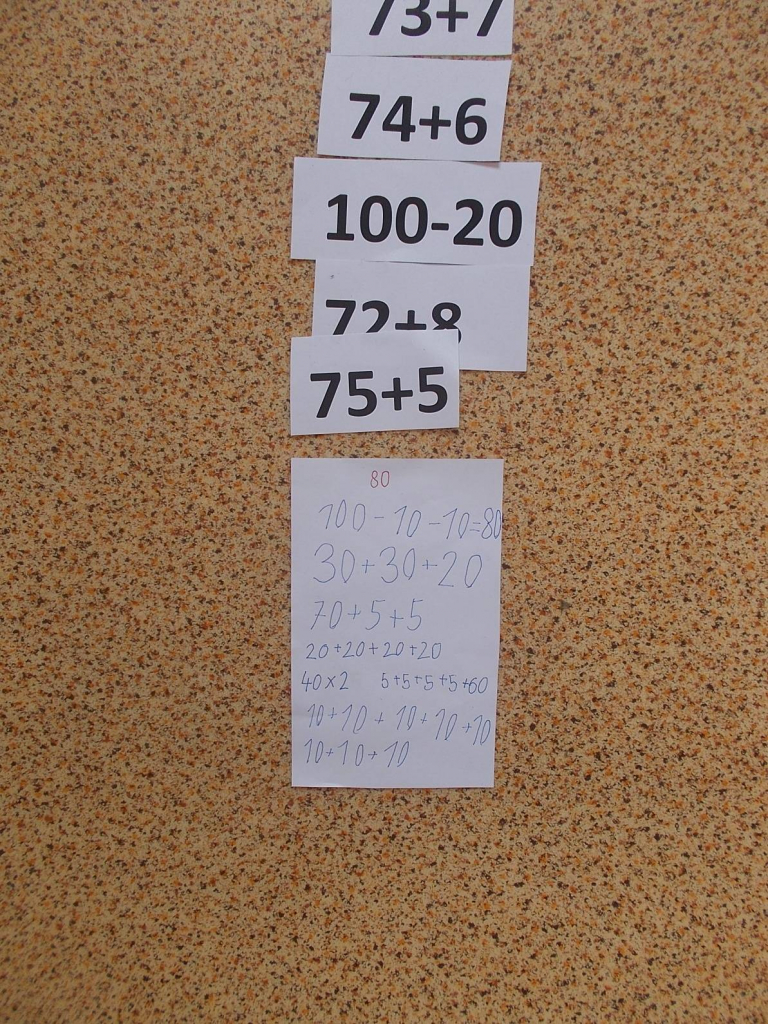 73+7
74+6
100-20
72+8
75+5
80
100-10-10=80
30+30+20
70+5+5
20+20+20+20
40x2 5+5+5+5+60
10+10+10+10+10
10+10+10